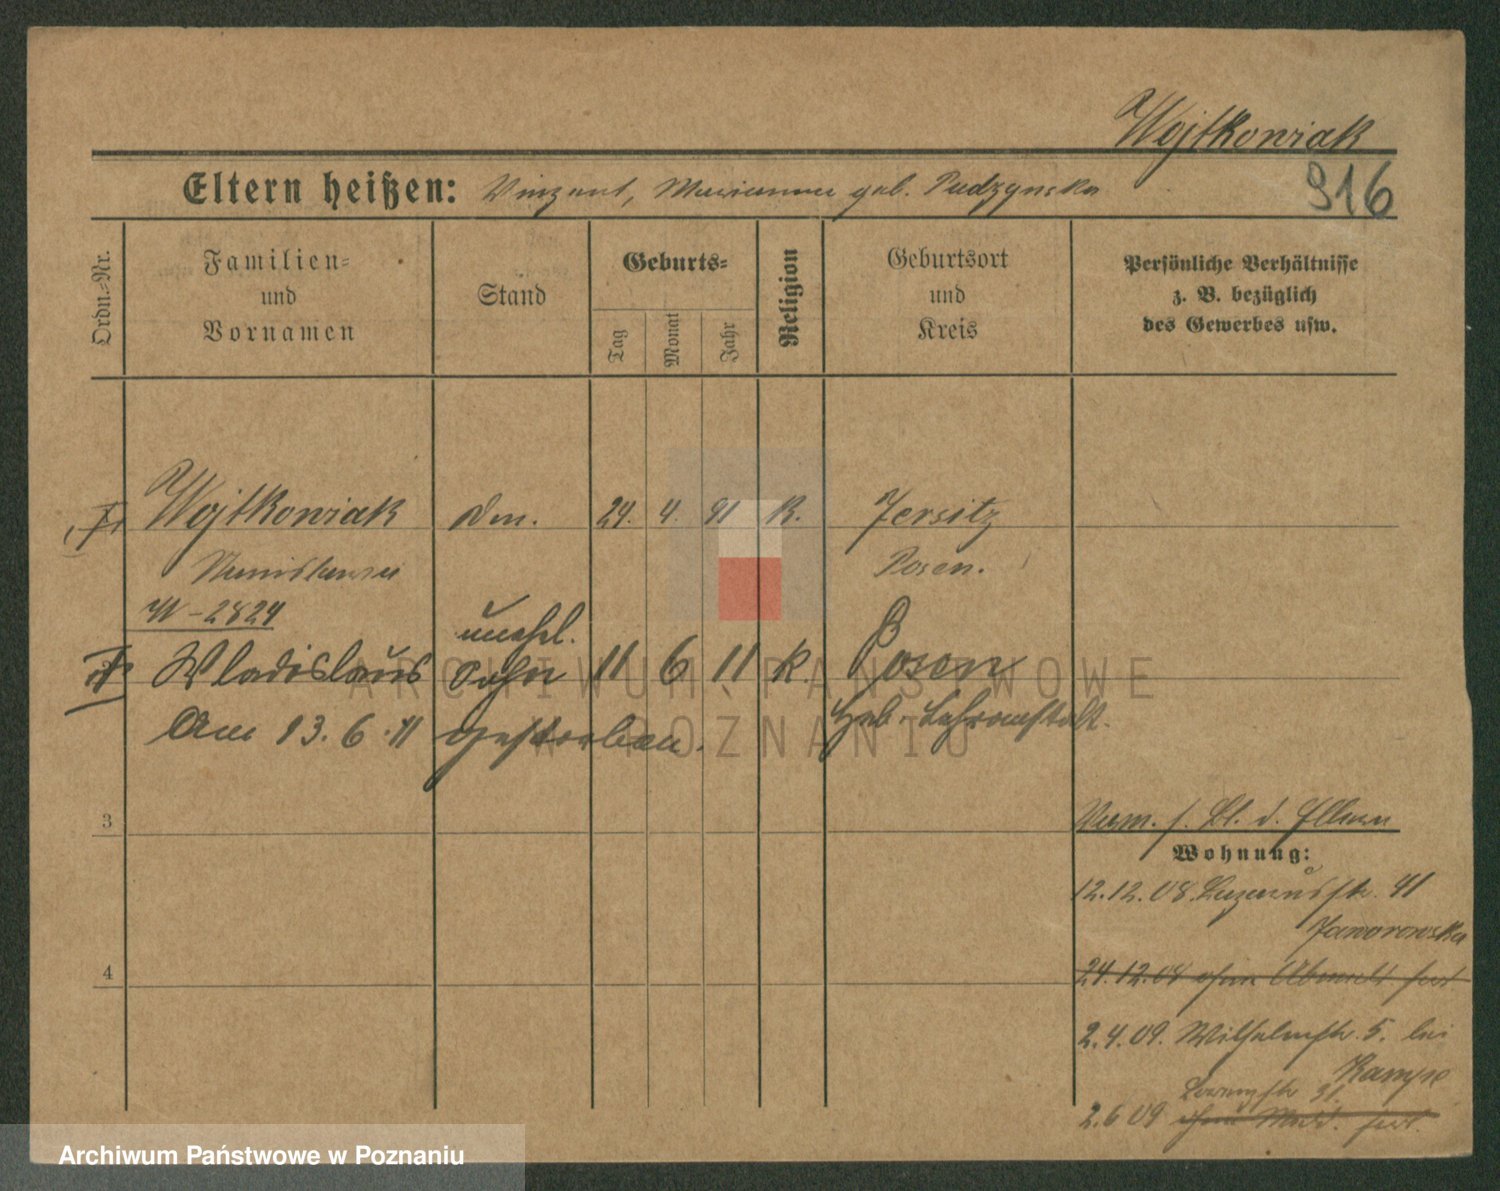 Wojtkowiak
916
Eltern heißen: Vinzent, Marianna geb. Pudzynska
Ordn.-Nr.
Familien-
und
Vornamen
Stand
Geburts-
Tag
Monat
Jahr
Religion
Geburtsort
und
Kreis
Persönliche Verhältnisse
z. B. bezüglich
des Gewerbes usw.
Wojtkowiak
24. 4. 91 K. Jersitz
Stanislawa Posen.
2824
unehl.
Wladislaus Sohn 11 6 11 K. Posen
Am 13.6.11 gestorben. Heb. Lehranstalt.
3
d. Eltern
Wohnung:
12.12.08. Lazarusstr. 41
Jaworowska
4
24.12.08 ohne
2.4.09. Wilhelmstr. 5. bei
Kampe
31.
2.6.09 ohne
ARCHIWUM PAŃSTWOWE
W POZNANIU
Archiwum Państwowe w Poznaniu